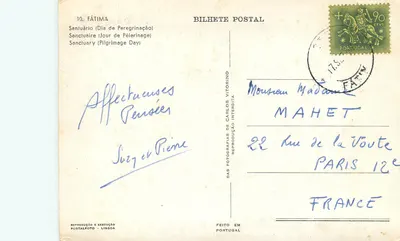 10. FÁTIMA
Santuário (Dia de Peregrinação)
Sanctuaire (Jour de Pélerinage)
Sanctuary (Pilgrimage Day)
BILHETE POSTAL
90
FÁTIM
Affectueuses
Pensées
Suzy et Pierre
Monsieur Madame
MAHET
22 Rue de la Voute
PARIS 12e
FRANCE
DAS FOTOGRAFIAS DE CARLOS VITORINO
REPRODUÇÃO INTERDITA
REPRODUÇÃO E EDIÇÃO
LISBOA
FEITO EM
PORTUGAL